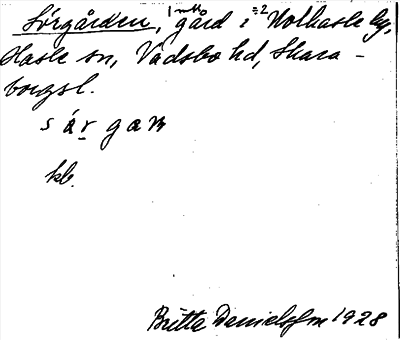 Sörgården, 1 mtl gård i Holhasle by,
Hasle sn, Vadsbo hd, Skara-
borgsl.
sǿrgan
kb.
Britta Danielsson 1928